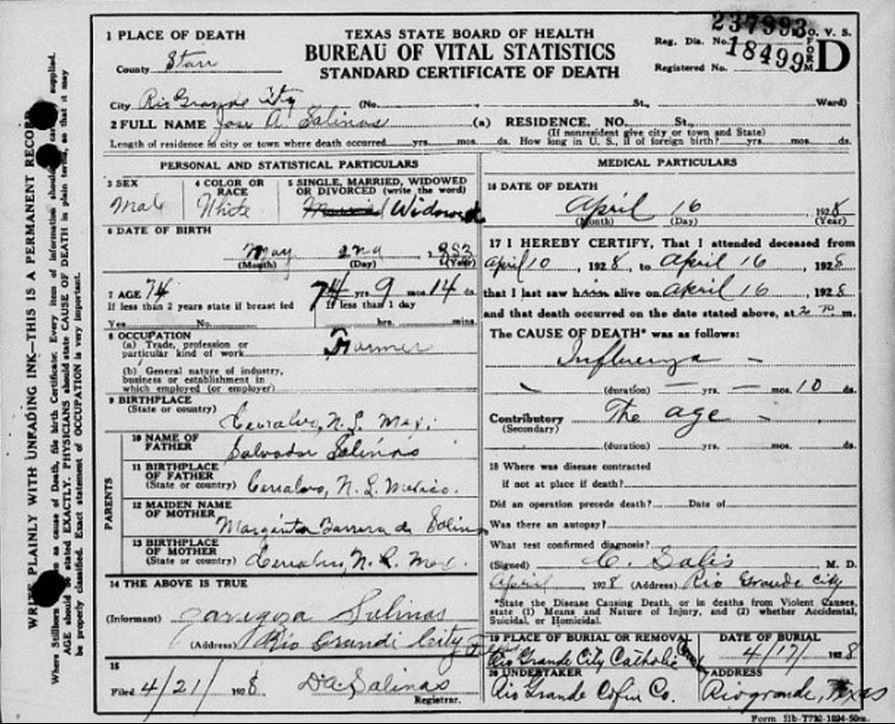 TEXAS STATE BOARD OF HEALTH
BUREAU OF VITAL STATISTICS
STANDARD CERTIFICATE OF DEATH
237993 O. V. S.
Reg. Dis. No.
FORM D
Registered No. 18499
1 PLACE OF DEATH
County Starr
City Rio Grande City (No. , St., Ward)
2 FULL NAME Jose A. Salinas (a) RESIDENCE. NO. St.,
(If nonresident give city or town and State)
Length of residence in city or town where death occurred yrs. mos. ds. How long in U. S., if of foreign birth? yrs. mos. ds.
PERSONAL AND STATISTICAL PARTICULARS
3 SEX
Male
4 COLOR OR RACE
White
5 SINGLE, MARRIED, WIDOWED OR DIVORCED (write the word)
Married Widowed
6 DATE OF BIRTH
May 2nd , 1853
(Month) (Day) (Year)
7 AGE 74 74 yrs 9 mos 14 ds
If less than 2 years state if breast fed If less than 1 day
Yes No. hrs. mins.
8 OCCUPATION
(a) Trade, profession or particular kind of work Farmer
(b) General nature of industry, business or establishment in which employed (or employer)
9 BIRTHPLACE
(State or country) Cerralvo, N. L. Mex.
PARENTS
10 NAME OF FATHER Salvador Salinas
11 BIRTHPLACE OF FATHER
(State or country) Cerralvo, N. L. Mexico.
12 MAIDEN NAME OF MOTHER
Margarita Barrera de Salinas
13 BIRTHPLACE OF MOTHER
(State or country) Cerralvo, N. L. Mex.
14 THE ABOVE IS TRUE
(Informant) Zaragoza Salinas
(Address) Rio Grande City
15
Filed 4/21 1928 D A Salinas
Registrar.
MEDICAL PARTICULARS
16 DATE OF DEATH
April 16 1928
(Month) (Day) (Year)
17 I HEREBY CERTIFY, That I attended deceased from
April 10 , 1928, to April 16 , 1928
that I last saw him alive on April 16 , 1928
and that death occurred on the date stated above, at 2 P. m.
The CAUSE OF DEATH* was as follows:
Influenza
(duration) yrs. mos. 10 ds.
Contributory The age
(Secondary)
(duration) yrs. mos. ds.
18 Where was disease contracted
if not at place of death?
Did an operation precede death? Date of
Was there an autopsy?
What test confirmed diagnosis?
(Signed) C. Solis M. D.
April , 1928 (Address) Rio Grande City
*State the Disease Causing Death, or in deaths from Violent Causes, state (1) Means and Nature of Injury, and (2) whether Accidental, Suicidal, or Homicidal.
19 PLACE OF BURIAL OR REMOVAL
Rio Grande City Catholic
DATE OF BURIAL
4/17/ 1928
20 UNDERTAKER
Rio Grande Cofin Co.
ADDRESS
Riogrande, Texas
Form 51b-T730-1024-50m
WRITE PLAINLY WITH UNFADING INK—THIS IS A PERMANENT RECORD
AGE should be stated EXACTLY. PHYSICIANS should state CAUSE OF DEATH in plain terms, so that it may
be properly classified. Exact statement of OCCUPATION is very important.